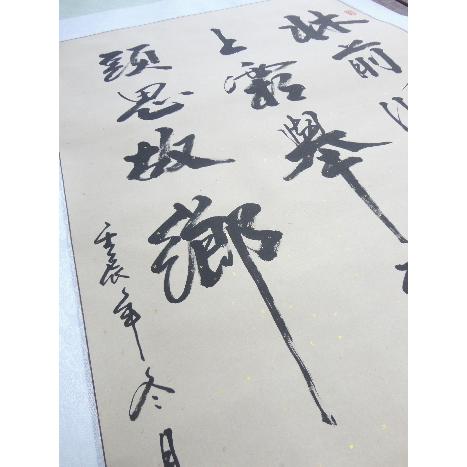 牀前
上霜舉
頭思故鄉
壬辰年冬月